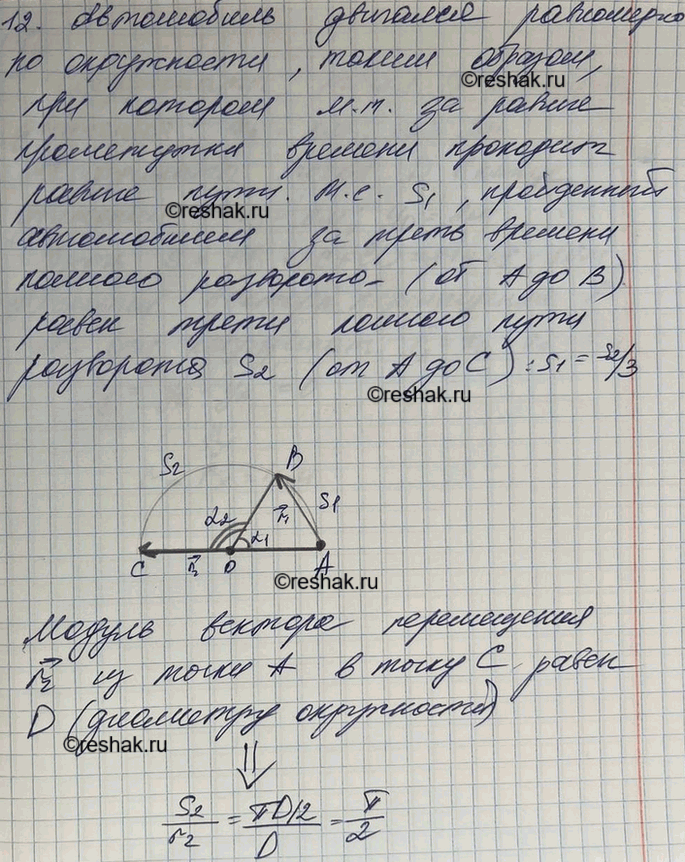 12. Автомобиль двигался равномерно
по окружности, таким образом,
©reshak.ru
при котором м.т. за равные
промежутки времени проходит
равные пути. т.е. S₁, пройденный
©reshak.ru
автомобилем за треть времени
полного разворота (от A до B)
равен трети полного пути
разворота S₂ (от A до C): S₁ = S₂/3
©reshak.ru
S₂ B
S₁
α₂ r⃗₁
α₁
C r⃗₂ O A
©reshak.ru
Модуль вектора перемещения
r⃗₂ из точки A в точку C равен
D (диаметру окружности)
©reshak.ru
⇓
S₂/r₂ = πD/2/D = π/2